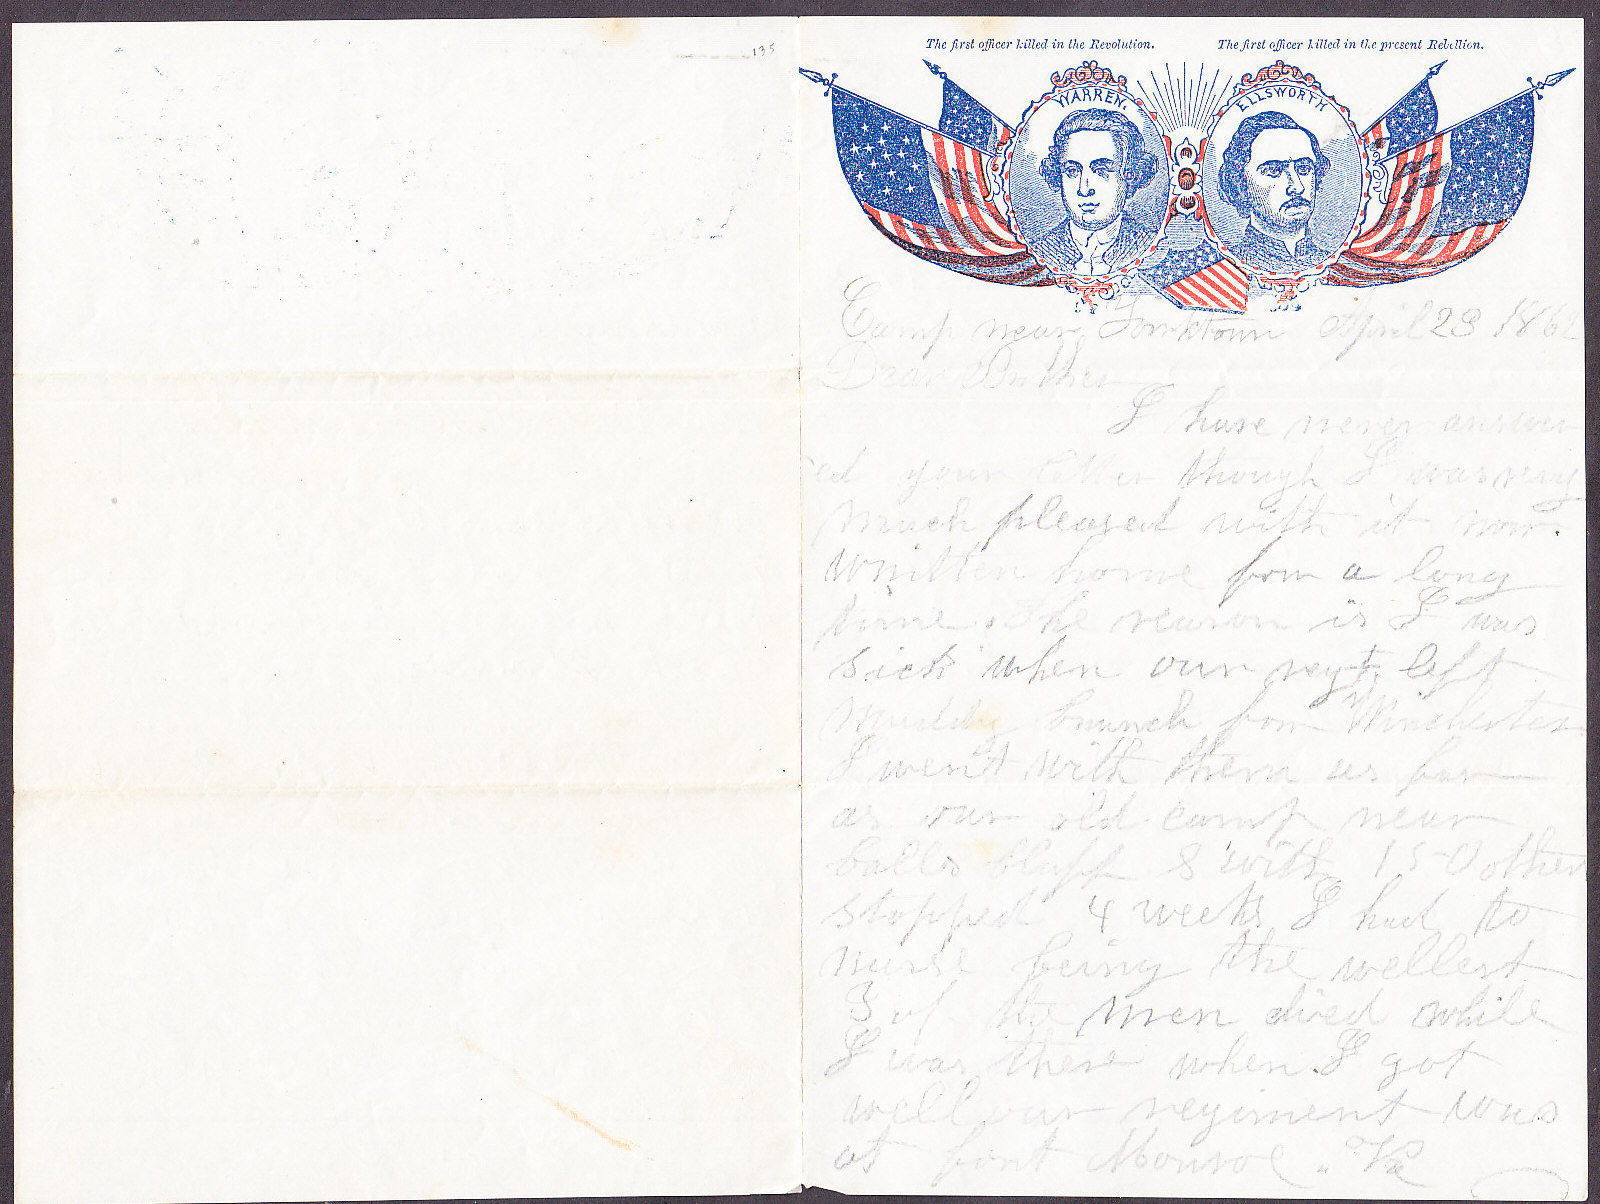 135
The first officer killed in the Revolution.
The first officer killed in the present Rebellion.
WARREN.
ELLSWORTH
Camp near Yorktown April 23 1862
Dear Brother
I have never answer
ed your letter though I was very
much pleased with it nor
written home for a long
time. The reason is I was
sick when our regt. left
muddy branch for Winchester
I went with them as far
as our old camp near
balls bluff & with 150 other
stopped 4 weeks I had to
nurse being the wellest
3 of the men died while
I was there when I got
well our regiment was
at fort Monroe. Va